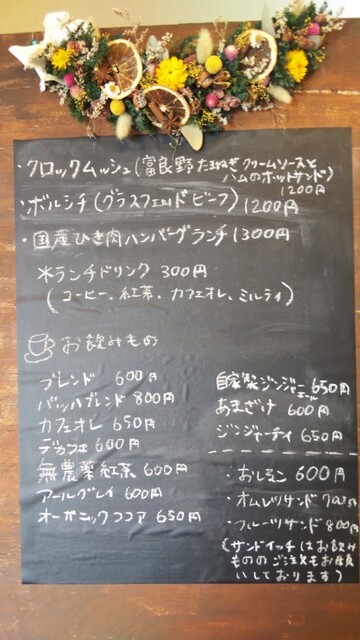 ・クロックムッシュ(富良野たまねぎクリームソースと
ハムのホットサンド)
1200円
・ボルシチ(グラスフェッドビーフ) 1200円
・国産ひき肉ハンバーグランチ 1300円
*ランチドリンク 300円
(コーヒー、紅茶、カフェオレ、ミルティ)
お飲みもの
ブレンド 600円
バッハブレンド 800円
カフェオレ 650円
デカフェ 600円
無農薬紅茶 600円
アールグレイ 600円
オーガニックココア 650円
自家製ジンジャーエール 650円
あまざけ 600円
ジンジャーティ 650円
・おしるこ 600円
・オムレツサンド 700円
・フルーツサンド 800円
(サンドイッチはお飲み
もののご注文もお願
いしております)